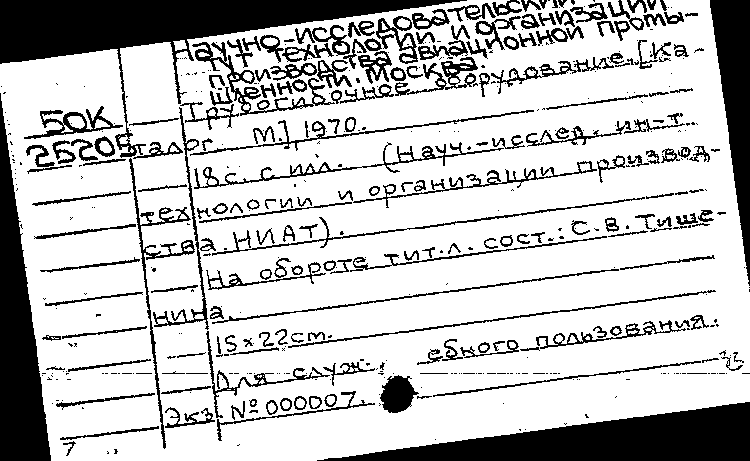 Научно-исследовательский
ин-т технологии и организации
производства авиационной промы-
шленности. Москва.
50К
25205
Трубогибочное оборудование. [Ка-
талог. М.], 1970.
18 с. с илл. (Науч.-исслед. ин-т
технологии и организации производ-
ства. НИАТ).
На обороте тит. л. сост.: С. В. Тише-
нина.
15 x 22 см.
Для служебного пользования.
Экз. № 000007.